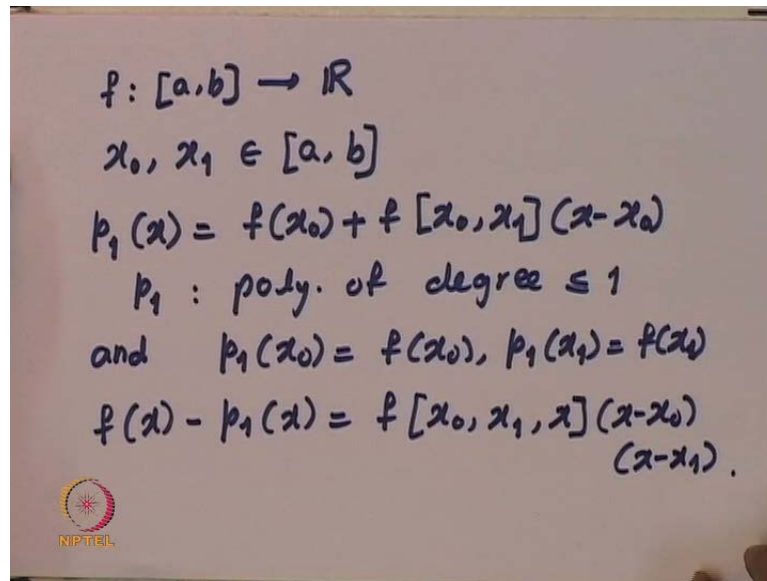 f : [a, b] → ℝ
x₀, x₁ ∈ [a, b]
p₁(x) = f(x₀) + f[x₀, x₁](x-x₀)
p₁ : poly. of degree ≤ 1
and p₁(x₀) = f(x₀), p₁(x₁) = f(x₁)
f(x) - p₁(x) = f[x₀, x₁, x](x-x₀)
(x-x₁).
NPTEL